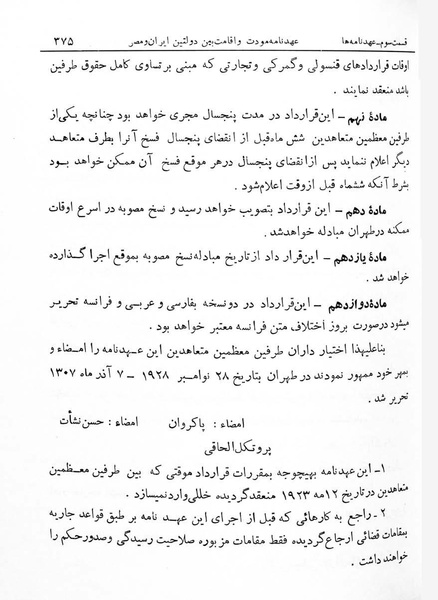 قسمت سوم ـ عهدنامه‌ها    عهدنامه مودت و اقامت بین دولتین ایران و مصر    ۳۷۵
اوقات قراردادهای قنسولی وگمرکی وتجارتی که مبنی برتساوی کامل حقوق طرفین
باشد منعقد نمایند .
مادهٔ نهم ـ این‌قرارداد در مدت پنجسال مجری خواهد بود چنانچه یکی‌از
طرفین معظمین متعاهدین شش ماه‌قبل از انقضای پنجسال فسخ آنرا بطرف متعاهد
دیگر اعلام ننماید پس ازانقضای پنجسال درهر موقع فسخ آن ممکن خواهد بود
بشرط آنکه ششماه قبل ازوقت اعلام‌شود .
مادهٔ دهم ـ این قرارداد بتصویب خواهد رسید و نسخ مصوبه در اسرع اوقات
ممکنه درطهران مبادله خواهدشد .
مادهٔ یازدهم ـ این‌قرار داد ازتاریخ مبادله‌نسخ مصوبه بموقع اجرا گذارده
خواهد شد .
مادهٔ دوازدهم ـ این‌قرارداد در دونسخه بفارسی و عربی و فرانسه تحریر
میشود درصورت بروز اختلاف متن فرانسه معتبر خواهد بود .
بناعلیهذا اختیار داران طرفین معظمین متعاهدین این عهدنامه را امضاء و
بمهر خود ممهور نمودند در طهران بتاریخ ۲۸ نوامبر ۱۹۲۸ ـ ۷ آذر ماه ۱۳۰۷
تحریر شد .
امضاء : پاکروان    امضاء : حسن نشأت
پروتکل‌الحاقی
۱ ـ این‌عهدنامه بهیچوجه بمقررات قرارداد موقتی که بین طرفین معظمین
متعاهدین درتاریخ ۱۲مه ۱۹۲۳ منعقدگردیده خللی‌واردنمیسازد .
۲ ـ راجع به کارهائی که قبل از اجرای این عهد نامه بر طبق قواعد جاریه
بمقامات قضائی ارجاع‌گردیده فقط مقامات مزبوره صلاحیت رسیدگی وصدورحکم را
خواهند داشت .